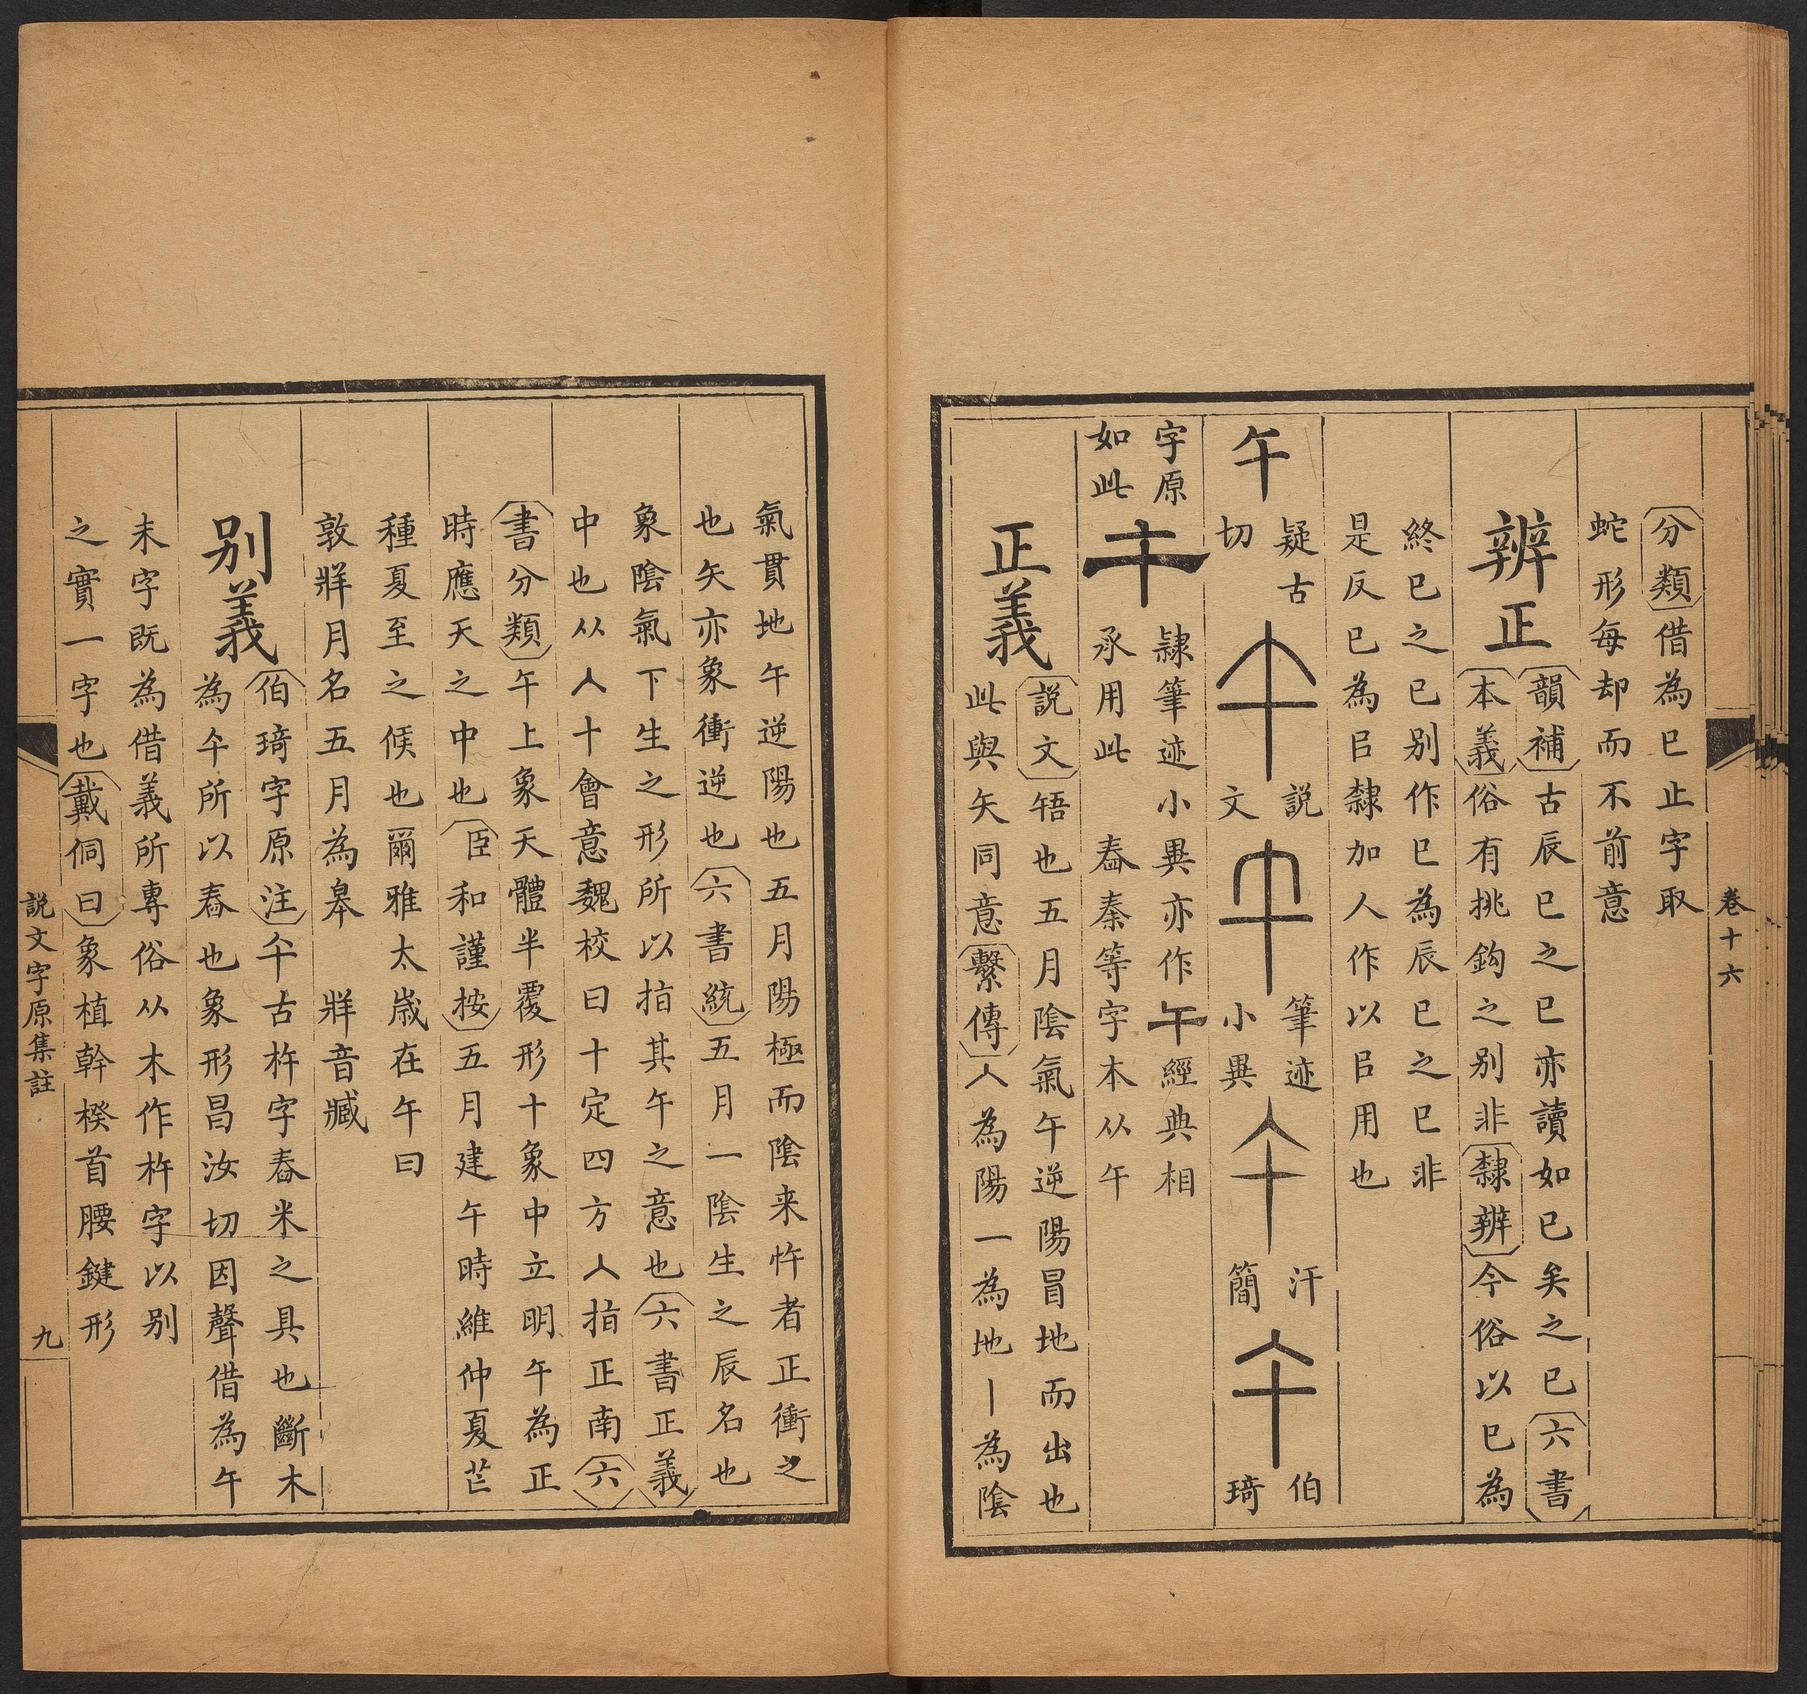 卷十六
分類借為巳止字取
蛇形每却而不前意
辨正
韻補古辰巳之巳亦讀如已矣之已六書
本義俗有挑鈎之别非隸辨今俗以巳為
終已之已别作巳為辰巳之巳非
是反巳為㠯隸加人作以㠯用也
午
疑古
切
説
文
筆迹
小異
汗
簡
伯
琦
字原
如此
午
隸筆迹小異亦作午經典相
承用此　舂秦等字本从午
正義
説文啎也五月陰氣午逆陽冒地而出也
此與矢同意繫傳人為陽一為地丨為陰
氣貫地午逆陽也五月陽極而陰来忤者正衝之
也矢亦象衝逆也六書統五月一陰生之辰名也
象陰氣下生之形所以指其午之意也六書正義
中也从人十會意魏校曰十定四方人指正南六
書分類午上象天體半覆形十象中立明午為正
時應天之中也臣和謹按五月建午時維仲夏芒
種夏至之候也爾雅太歲在午曰
敦牂月名五月為皋　牂音臧
别義
伯琦字原注午古杵字舂米之具也斷木
為午所以舂也象形昌汝切因聲借為午
未字既為借義所專俗从木作杵字以别
之實一字也戴侗曰象植幹楑首腰鍵形
説文字原集註
九